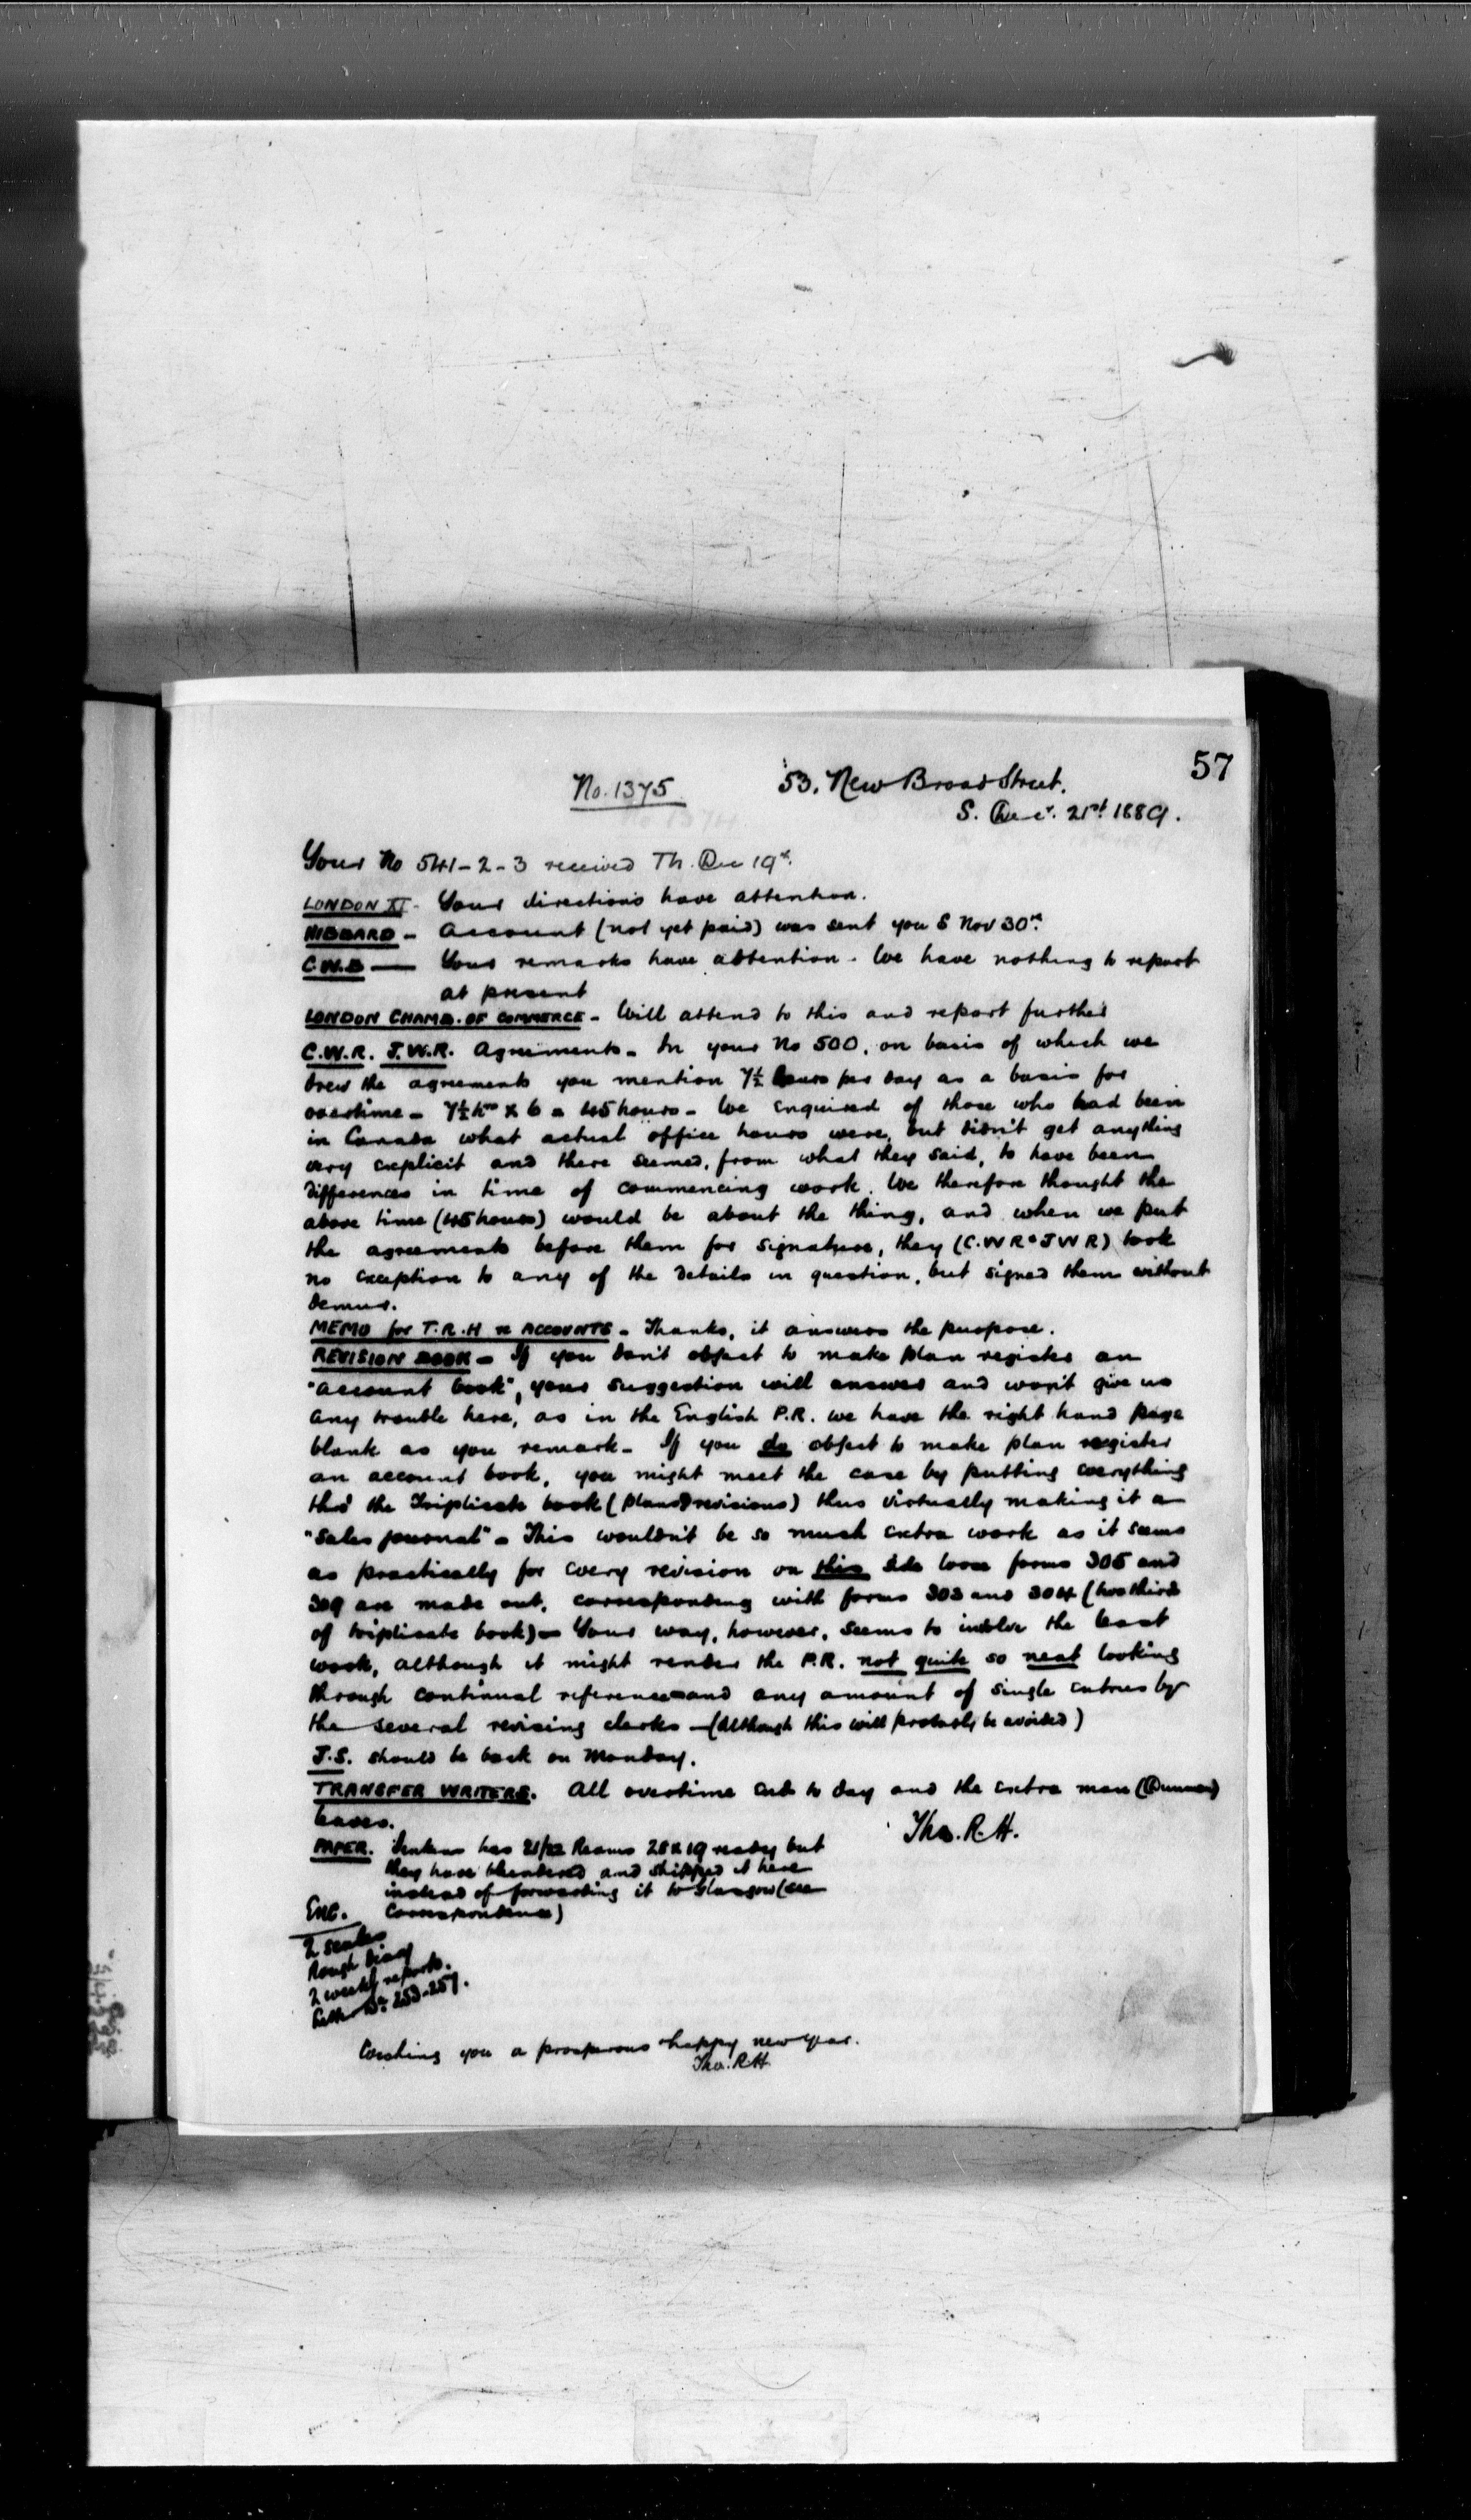 57
No. 1375 53, New Broad Street.
S. Decr. 21st 1889.
Your No 541-2-3 received Th. Dec 19th.
LONDON XI - Your directions have attention.
HIBBARD - Account (not yet paid) was sent you S Nov 30th.
C.W.B - Your remarks have attention. We have nothing to report
at present
LONDON CHAMB. OF COMMERCE - Will attend to this and report further
C.W.R. J.W.R. Agreements - In your No 500, on basis of which we
drew the agreements you mention 7½ hours per day as a basis for
overtime - 7½ hrs x 6 = 45 hours - We enquired of those who had been
in Canada what actual office hours were, but didn't get anything
very explicit and there seemed, from what they said, to have been
differences in time of commencing work. We therefore thought the
above time (45 hours) would be about the thing, and when we put
the agreements before them for signature, they (C.W R & J W R) took
no exception to any of the details in question, but signed them without
demur.
MEMO for T.R.H re ACCOUNTS - Thanks, it answers the purpose.
REVISION BOOK - If you don't object to make plan register an
"account book", your suggestion will answer and won't give us
any trouble here, as in the English P.R. we have the right hand page
blank as you remark - If you do object to make plan register
an account book, you might meet the case by putting everything
thro' the Triplicate book (plans & revisions) thus virtually making it a
"Sales journal" - This wouldn't be so much extra work as it seems
as practically for every revision on this side loose forms 305 and
309 are made out, corresponding with forms 303 and 304 (two thirds
of triplicate book) - Your way, however, seems to involve the least
work, although it might render the P.R. not quite so neat looking
through continual references and any amount of single entries by
the several revising clerks - (Although this will probably be avoided)
J.S. should be back on Monday.
TRANSFER WRITERS. All overtime ends to day and the extra man
leaves.
Tho. R.H.
PAPER. has 21/22 Reams 28 x 19 ready but
they have blundered and shipped it here
instead of forwarding it to Glasgow (see
correspondence)
Enc.
2 scales
Rough Diary
2 weekly reports.
253-257.
Wishing you a prosperous & happy new year.
Tho. R.H.